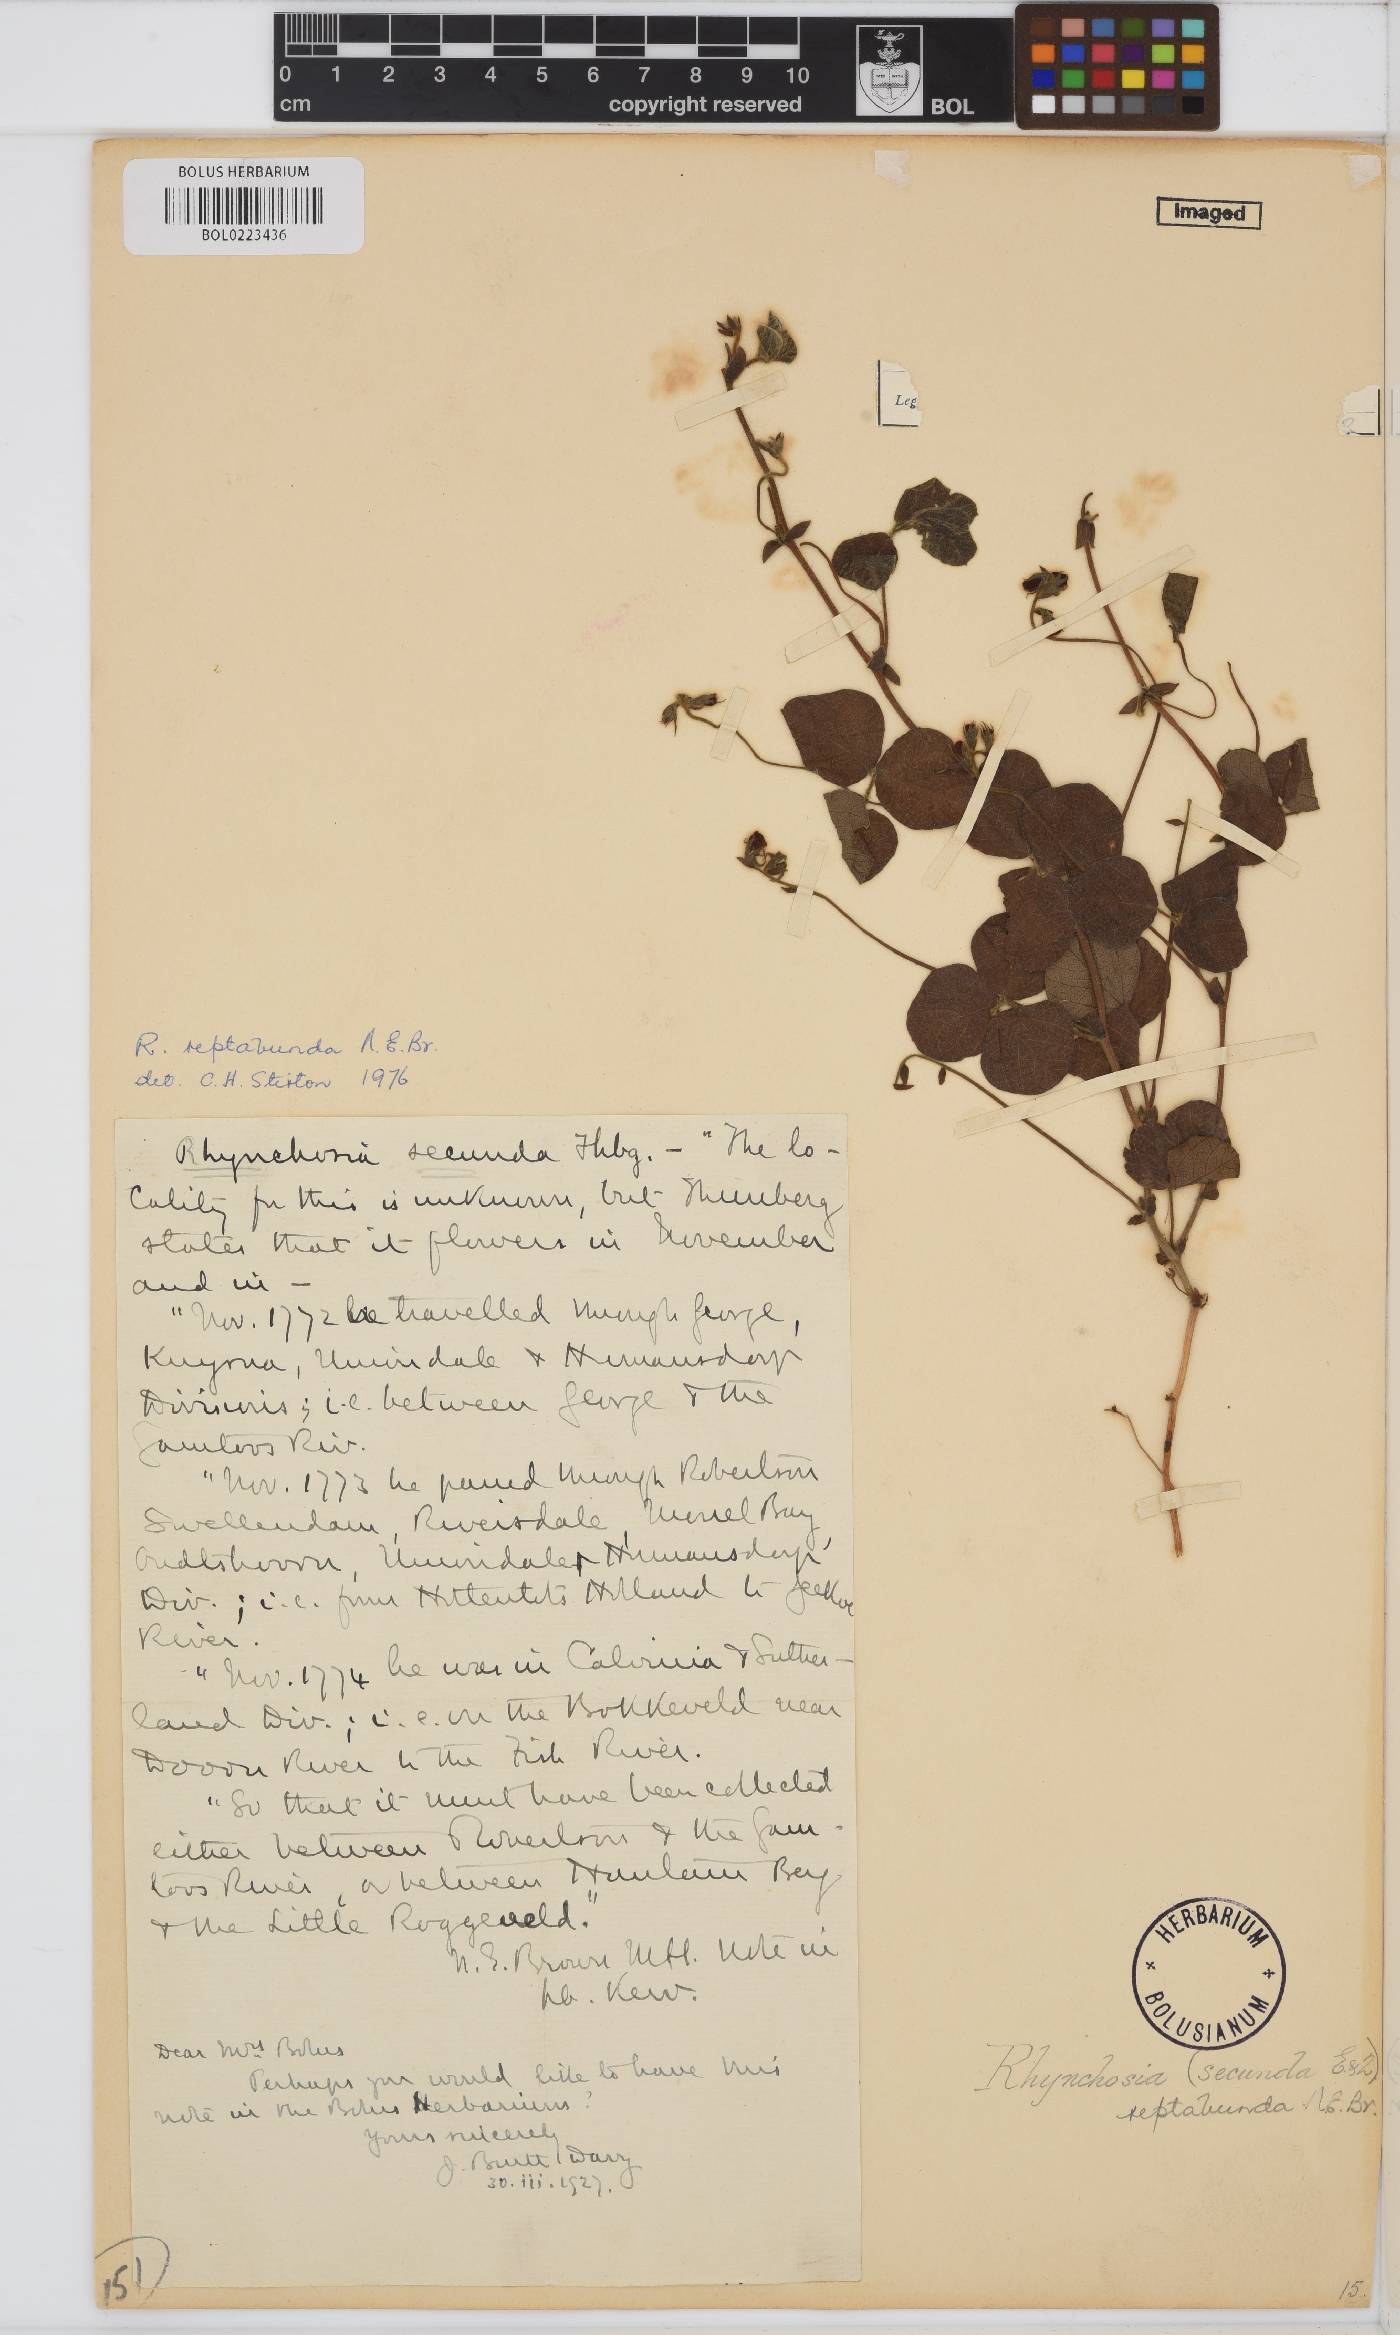 0 1 2 3 4 5 6 7 8 9 10
cm
copyright reserved
BOL
BOLUS HERBARIUM
BOL0223436
Imaged
Leg
R. reptabunda N.E.Br.
det. C.H. Stirton 1976
Rhynchosia secunda Thbg. — "The lo-
cality for this is unknown, but Thunberg
states that it flowers in November
and in —
"Nov. 1772 he travelled through George,
Knysna, Uniondale & Humansdorp
Divisions; i.e. between George & the
Gamtoos Riv.
"Nov. 1773 he passed through Robertson
Swellendam, Riversdale, Mossel Bay,
Oudtshoorn, Uniondale & Humansdorp
Div.; i.e. from Hottentots Holland to Seekoe
River.
"Nov. 1774 he was in Calvinia & Suther-
land Div.; i.e. on the Bokkeveld near
Doorn River to the Fish River.
"So that it must have been collected
either between Robertson & the Gam-
toos River, or between Hantam Berg
& the Little Roggeveld."
N.E. Brown MSS. note in
hb. Kew.
Dear Mrs Bolus
Perhaps you would like to have this
note in the Bolus Herbarium?
Yours sincerely
J. Burtt Davy
30.iii.1927.
HERBARIUM
BOLUSIANUM
Rhynchosia (secunda E&Z)
reptabunda N.E.Br.
151
15.